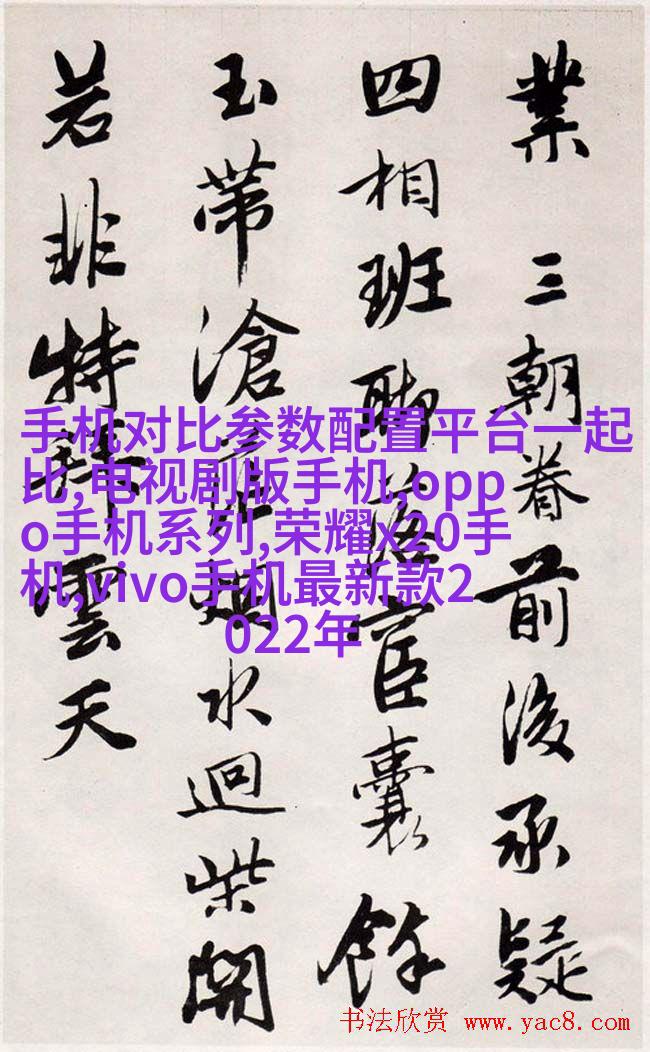 業 三朝眷前後承疑
四相班聯落宦囊餘
玉帶滄煙水迴柴開
若非特雲天
手机对比参数配置平台一起
比,电视剧版手机,opp
o手机系列,荣耀x20手
机,vivo手机最新款2
022年
书法欣赏 www.yac8.com